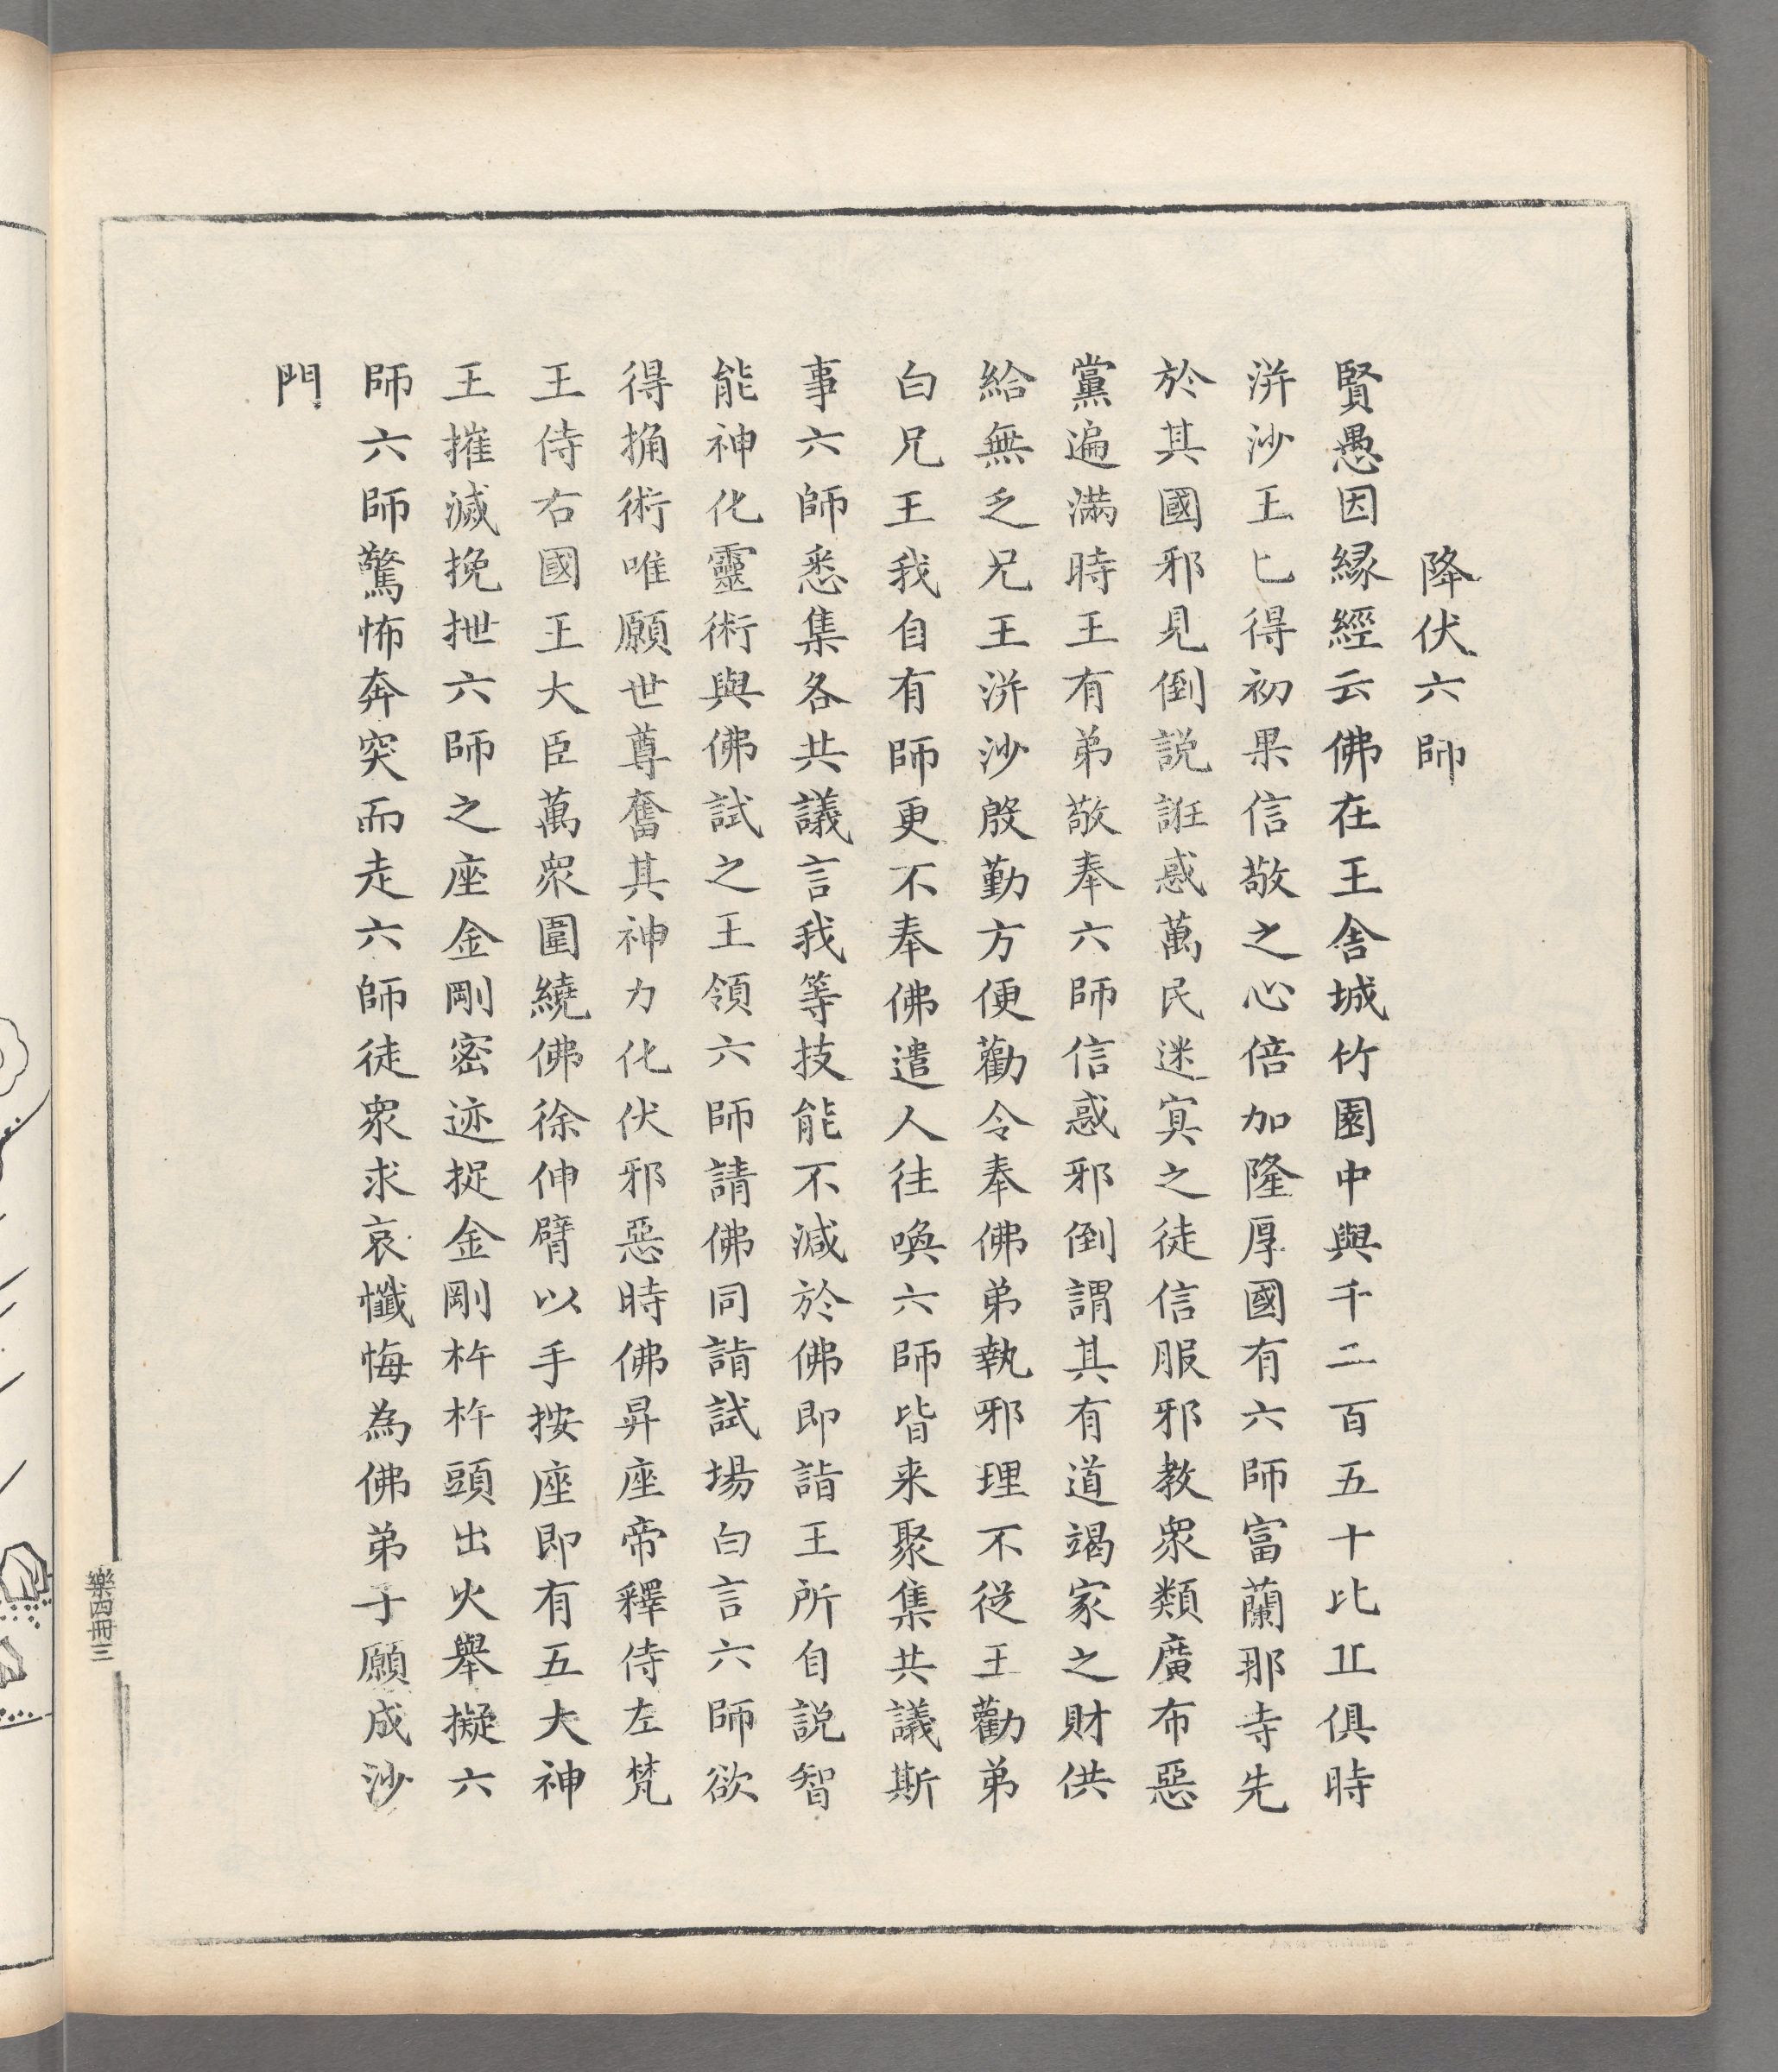 降伏六師
賢愚因縁經云佛在王舍城竹園中與千二百五十比丘俱時
洴沙王已得初果信敬之心倍加隆厚國有六師富蘭那寺先
於其國邪見倒説誑惑萬民迷㝠之徒信服邪教衆類廣布惡
黨遍滿時王有弟敬奉六師信惑邪倒謂其有道竭家之財供
給無乏兄王洴沙殷勤方便勸令奉佛弟執邪理不從王勸弟
白兄王我自有師更不奉佛遣人往喚六師皆来聚集共議斯
事六師悉集各共議言我等技能不減於佛即詣王所自説智
能神化靈術與佛試之王領六師請佛同詣試場白言六師欲
得捔術唯願世尊奮其神力化伏邪惡時佛昇座帝釋侍左梵
王侍右國王大臣萬衆圍繞佛徐伸臂以手按座即有五大神
王摧滅挽拽六師之座金剛密迹捉金剛杵杵頭出火舉擬六
師六師驚怖奔突而走六師徒衆求哀懺悔為佛弟子願成沙
門
樂四冊三